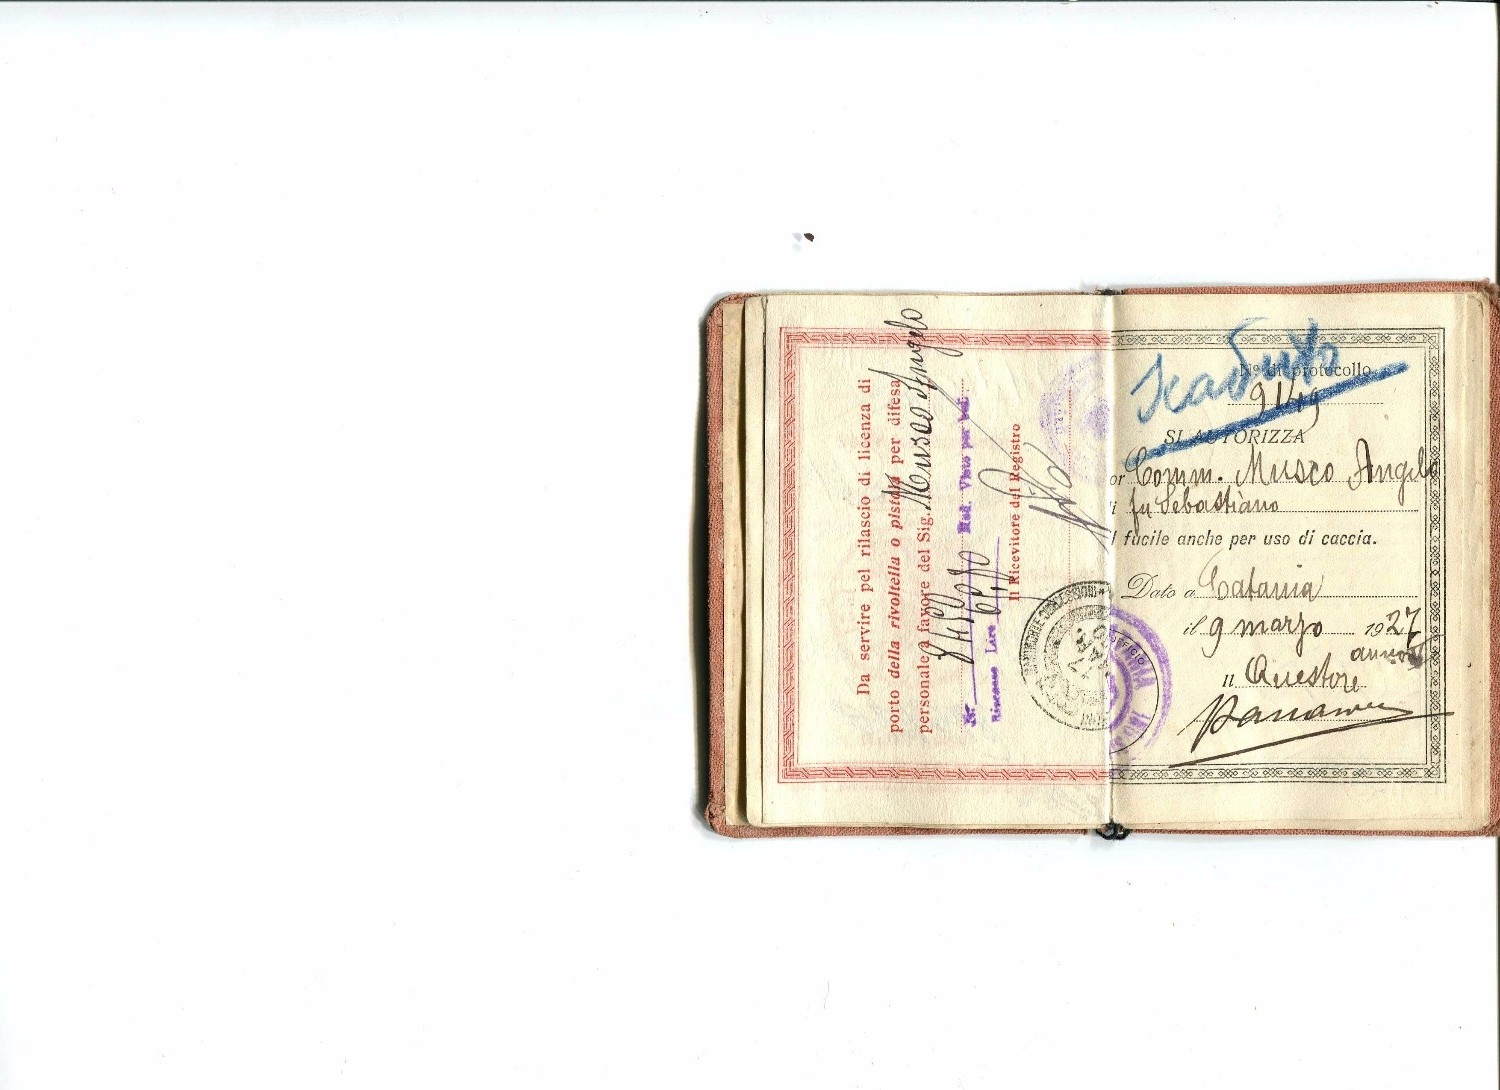 Da servire pel rilascio di licenza di
porto della rivoltella o pistola per difesa
personale a favore del Sig. Musco Angelo
Nr. 8450 Mod. Visto per
Riscosse Lire
Il Ricevitore del Registro
UFFICIO
Scaduto
N° di protocollo
SI AUTORIZZA
or Comm. Musco Angelo
i fu Sebastiano
l fucile anche per uso di caccia.
Dato a Catania
il 9 marzo 1927
anno V
Il Questore